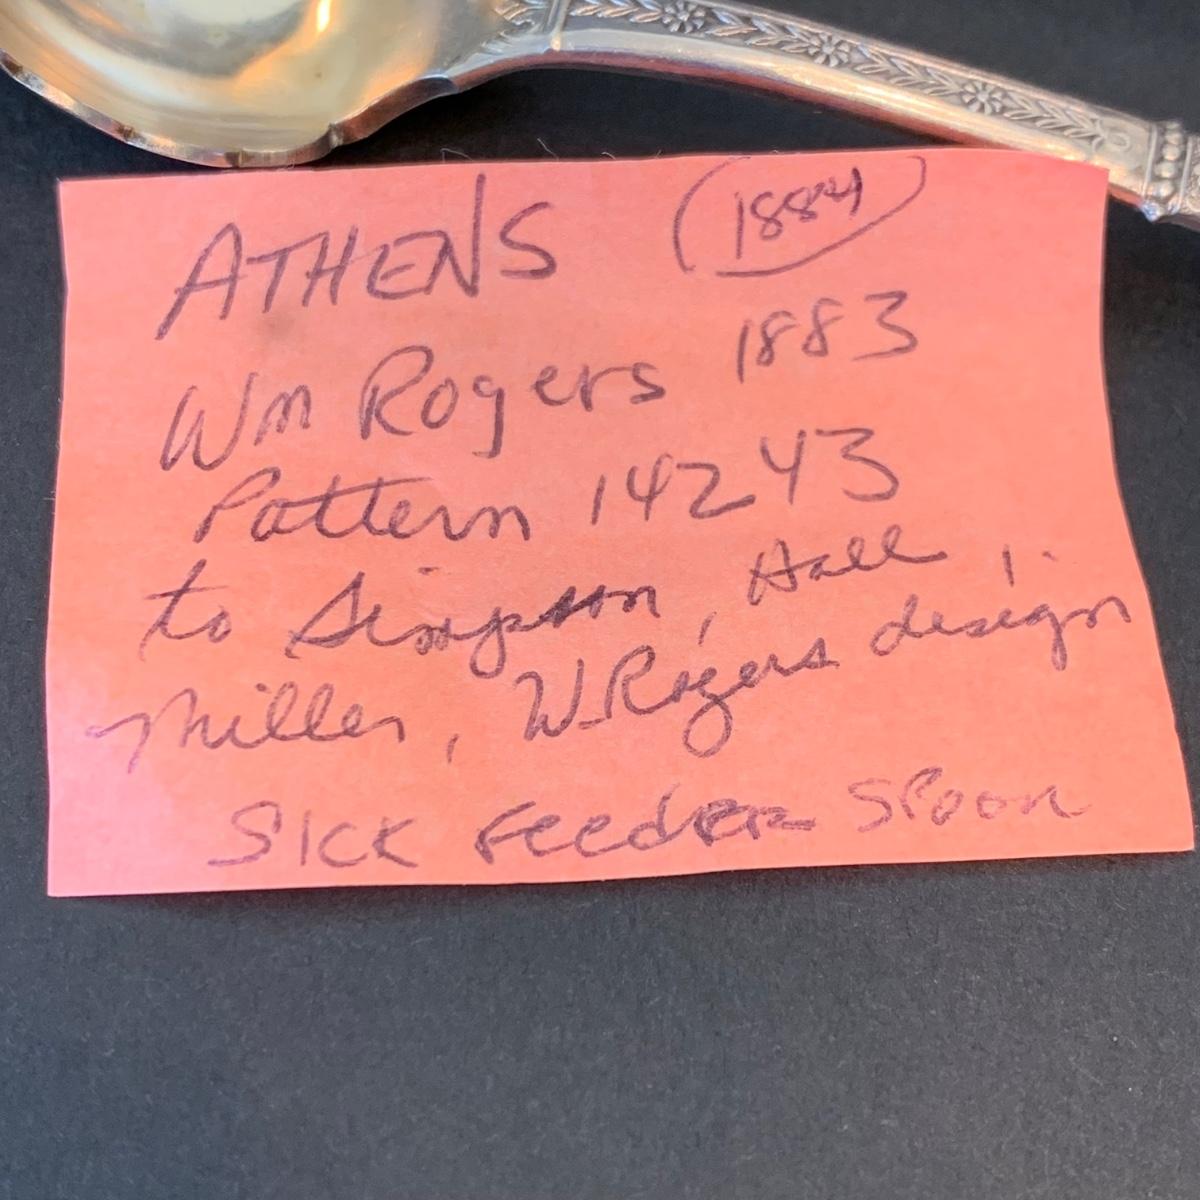 ATHENS (1884)
Wm Rogers 1883
Pattern 14243
to Simpson, Hall,
Miller, W. Rogers design
SICK FeedER SPoon